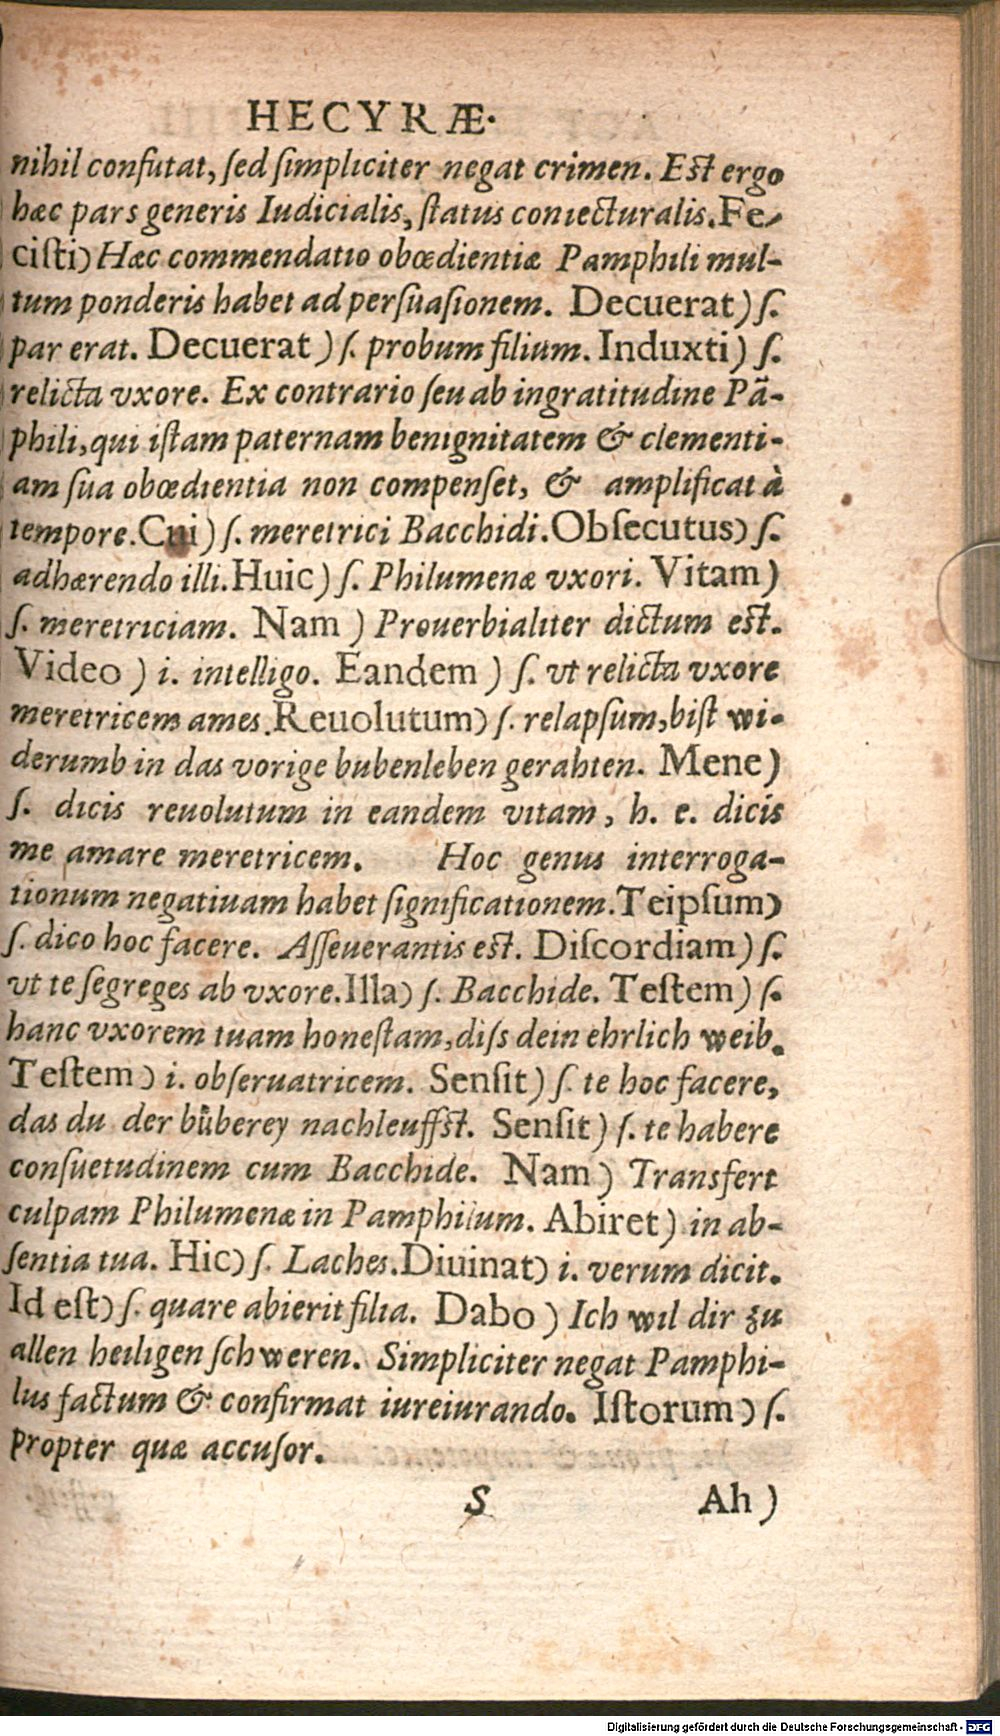 HECYRÆ.
nihil confutat, sed simpliciter negat crimen. Est ergo
hæc pars generis Iudicialis, status coniecturalis. Fe-
cisti) Hæc commendatio obœdientiæ Pamphili mul-
tum ponderis habet ad persuasionem. Decuerat) s.
par erat. Decuerat ) s. probum filium. Induxti) s.
relicta vxore. Ex contrario seu ab ingratitudine Pã-
phili, qui istam paternam benignitatem & clementi-
am sua obœdientia non compenset, & amplificat à
tempore. Cui) s. meretrici Bacchidi. Obsecutus) s.
adhærendo illi. Huic) s. Philumenæ vxori. Vitam)
s. meretriciam. Nam ) Prouerbialiter dictum est.
Video ) i. intelligo. Eandem ) s. vt relicta vxore
meretricem ames. Reuolutum) s. relapsum, bist wi-
derumb in das vorige bubenleben gerahten. Mene)
s. dicis reuolutum in eandem vitam, h. e. dicis
me amare meretricem. Hoc genus interroga-
tionum negatiuam habet significationem. Teipsum)
s. dico hoc facere. Asseuerantis est. Discordiam) s.
vt te segreges ab vxore. Illa) s. Bacchide. Testem) s.
hanc vxorem tuam honestam, diss dein ehrlich weib.
Testem) i. obseruatricem. Sensit) s. te hoc facere,
das du der bůberey nachleuffst. Sensit) s. te habere
consuetudinem cum Bacchide. Nam) Transfert
culpam Philumenæ in Pamphilum. Abiret) in ab-
sentia tua. Hic) s. Laches. Diuinat) i. verum dicit.
Id est) s. quare abierit filia. Dabo ) Ich wil dir zu
allen heiligen schweren. Simpliciter negat Pamphi-
lus factum & confirmat iureiurando. Istorum) s.
propter quæ accusor.
S Ah )
Digitalisierung gefördert durch die Deutsche Forschungsgemeinschaft - DFG